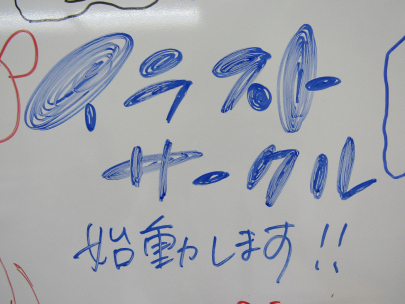 イラスト
サークル
始動します!!